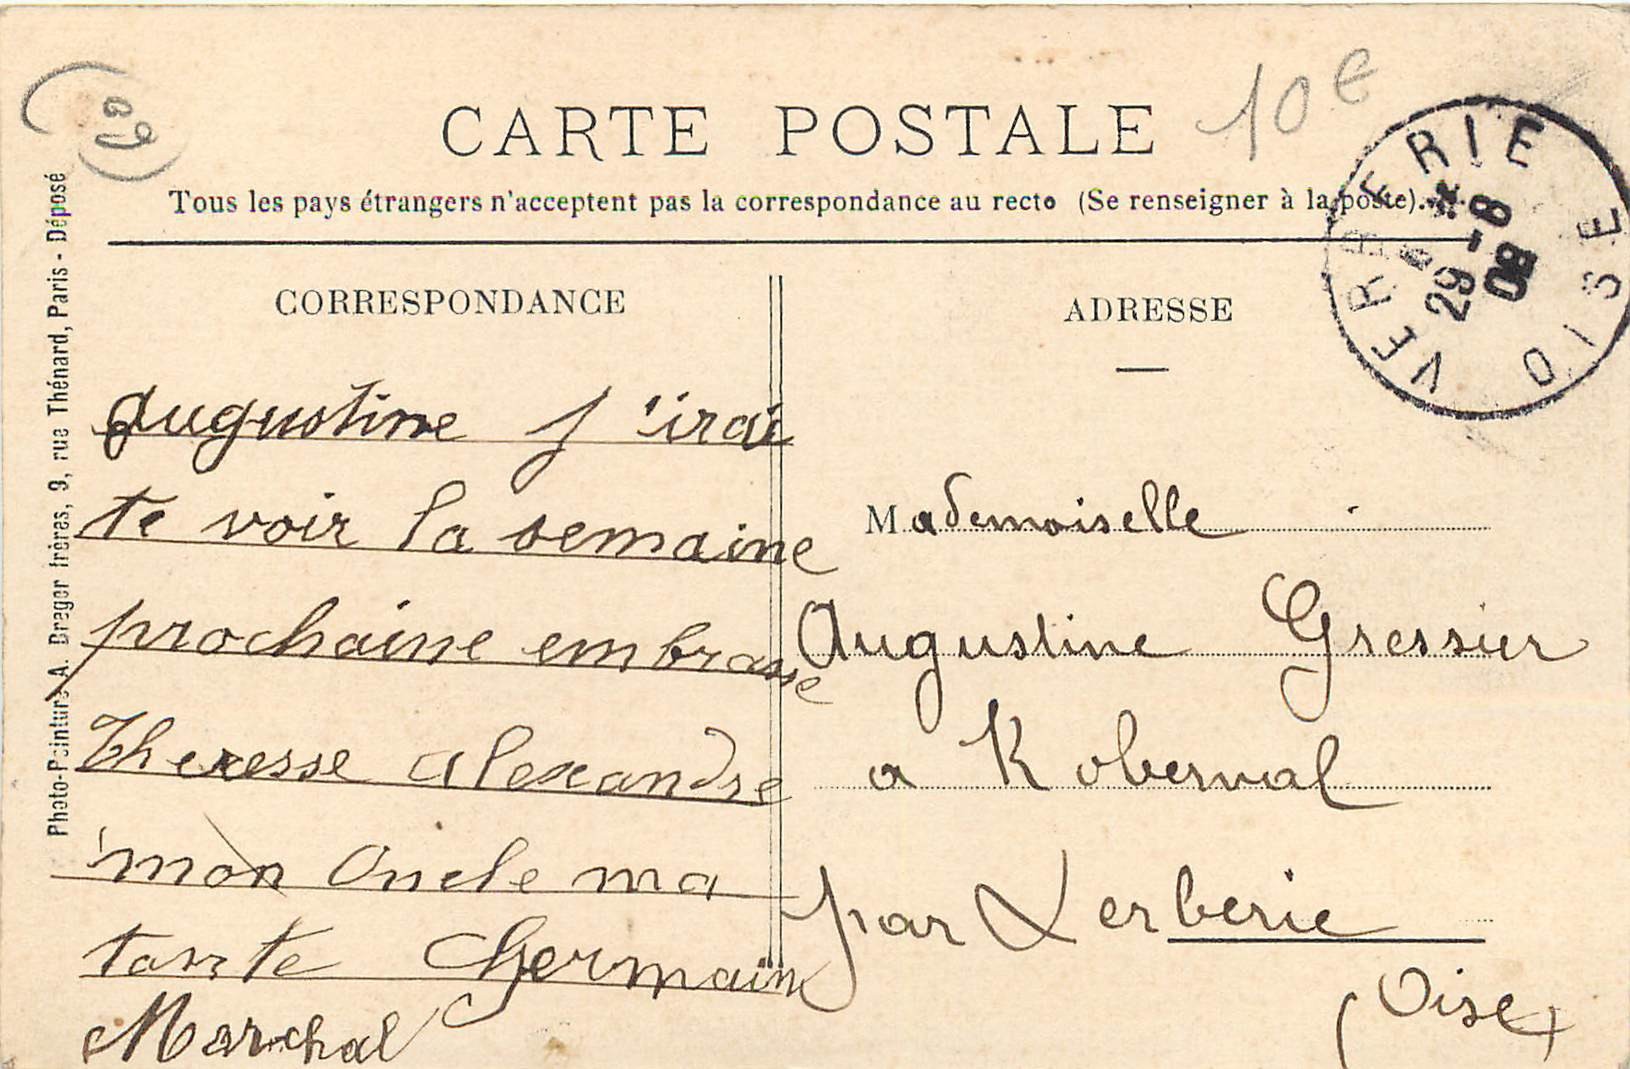 (09)
10€
CARTE POSTALE
Tous les pays étrangers n'acceptent pas la correspondance au recto (Se renseigner à la poste).
VERBERIE
29 - 8
09
OISE
Photo-Peinture A. Breger frères, 9, rue Thénard, Paris - Déposé
CORRESPONDANCE
Augustine j'irai
te voir la semaine
prochaine embrasse
Theresse alexandre
mon Oncle ma
tante Germain
Marchal
ADRESSE
Mademoiselle
Augustine Gressier
a Roberval
par Verberie
(Oise)